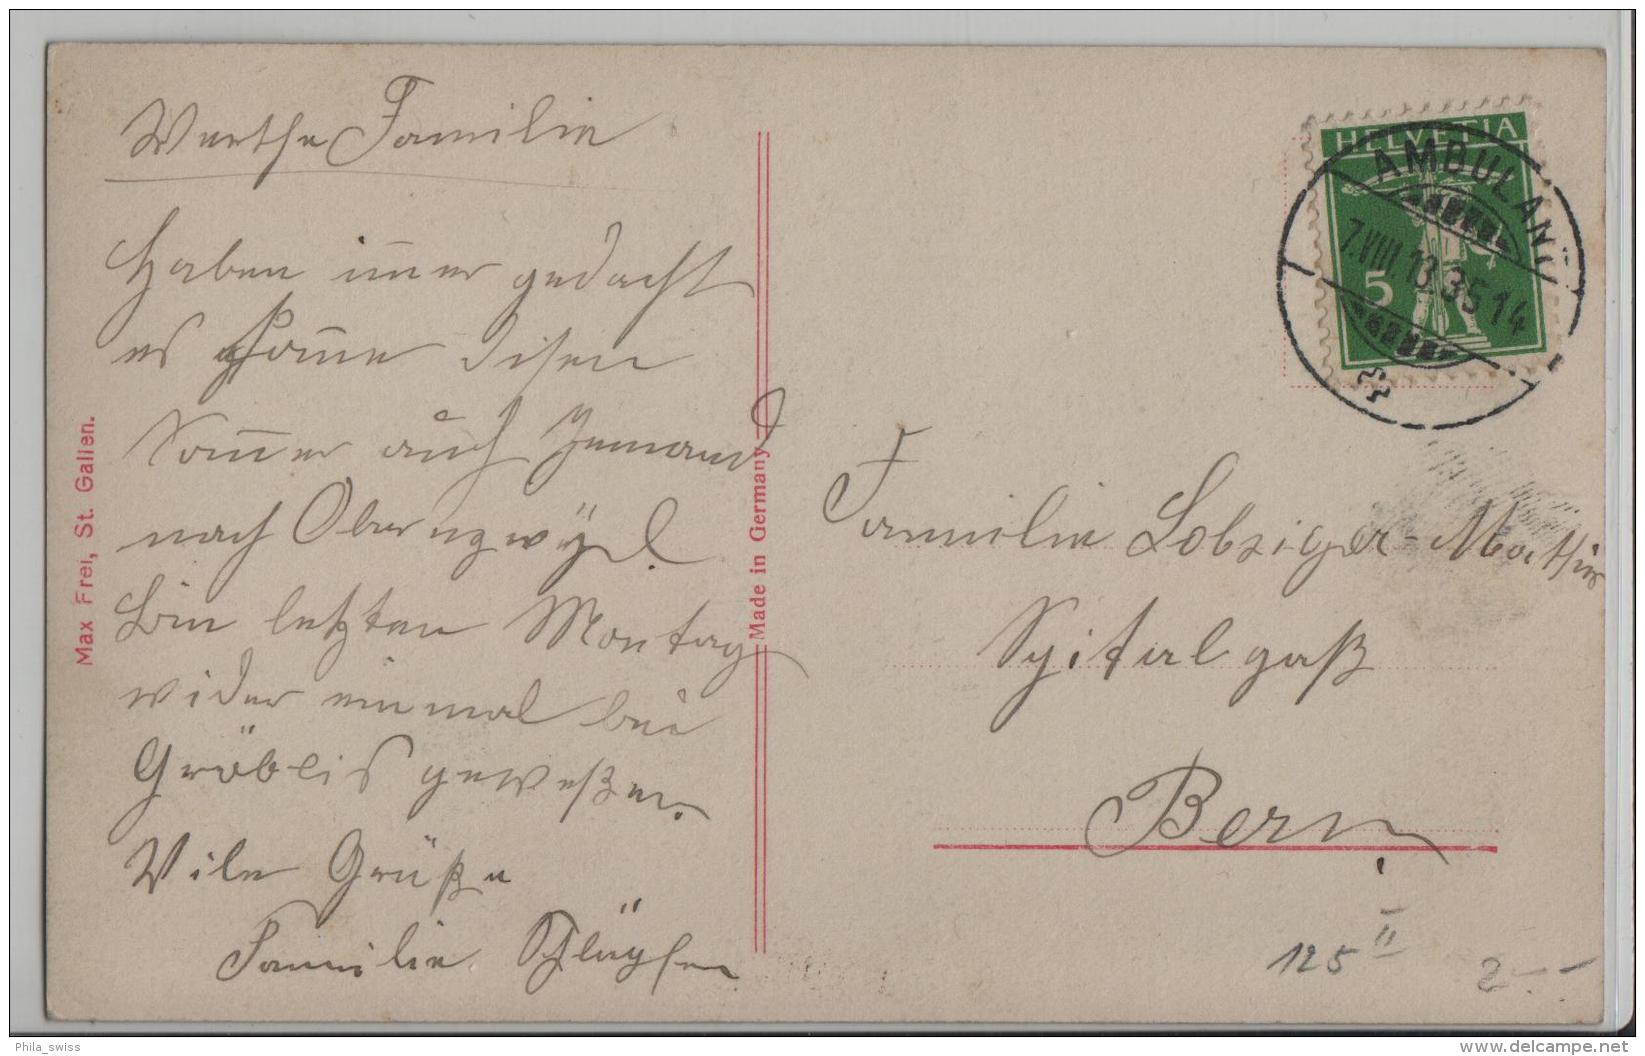 Werthe Familie
Haben im̅er gedacht
es kom̅e disen
Som̅er auch Jemand
nach Obernzwÿl.
Bin letzten Montag
wider einmal bei
Gröblis geweßen.
Vile Grüße
Familie
Max Frei, St. Gallen.
Made in Germany
HELVETIA
5
AMBULANT
7.VIII.13.3514
Familie Lobsiger-Mathis
Spitalgaß
Bern.
125 II
2.-
Phila_swiss
www.delcampe.net